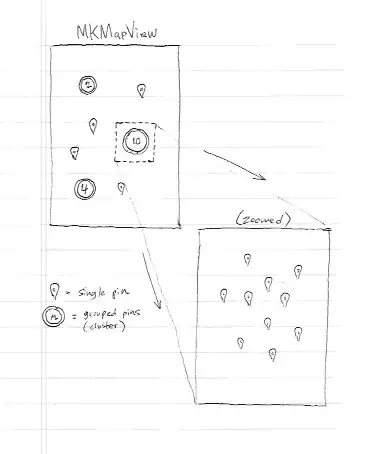 MKMapView
10
4
(zoomed)
= single pin
n = grouped pins
(cluster)